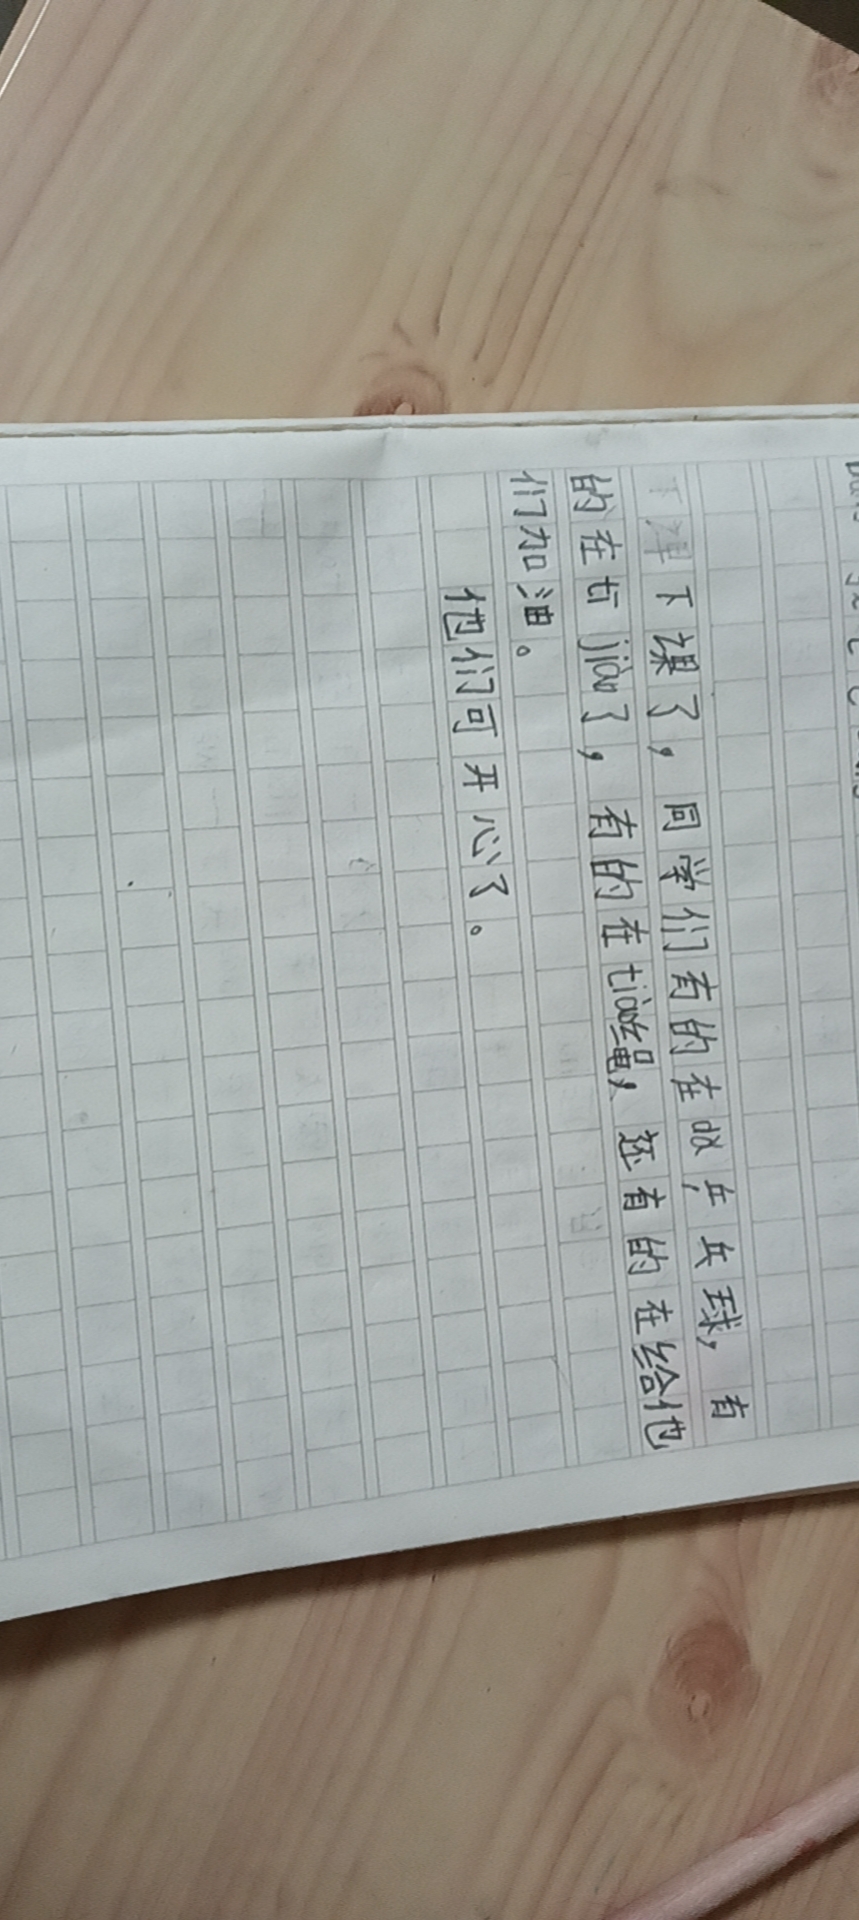 下课了，同学们有的在dǎ乒乓球，有
的在打jiàn了，有的在tiào绳，还有的在给他
们加油。
他们可开心了。